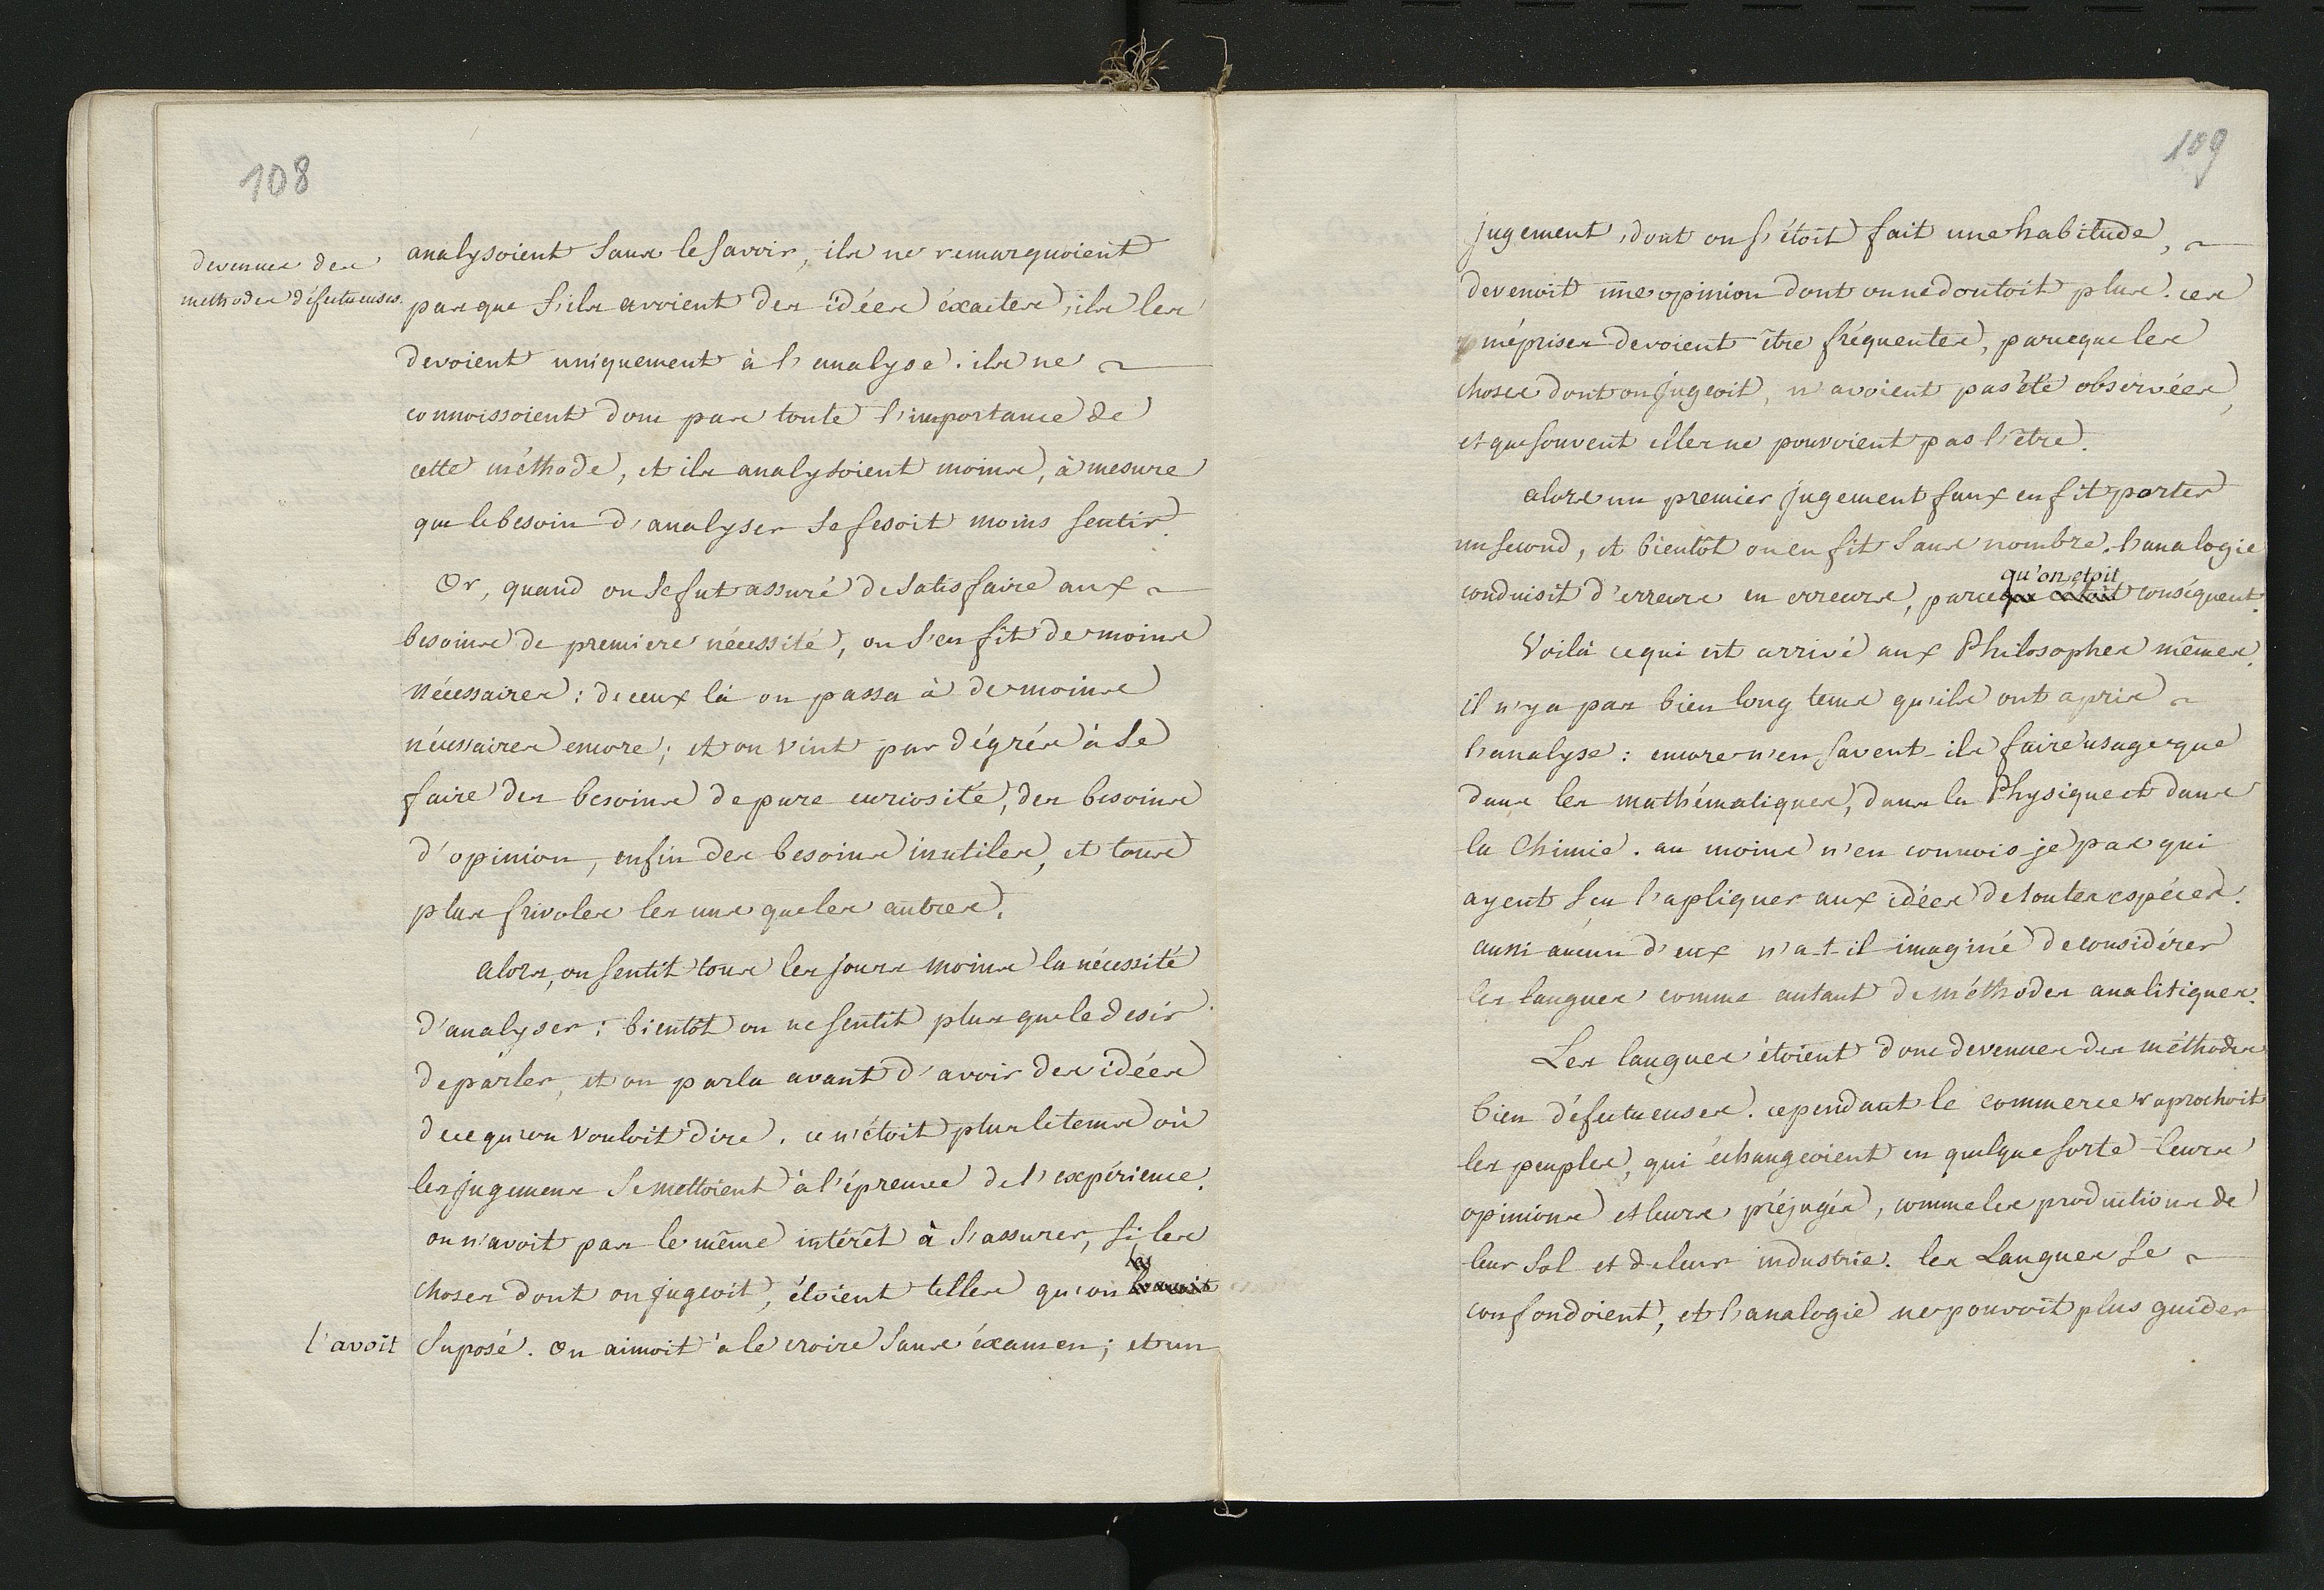 108
devenues des
methodes défectueuses.
analysoient sans le savoir, ils ne remarquoient
pas que s'ils avoient des idées éxactes, ils les
devoient uniquement à l'analyse. ils ne
connoissoient donc pas toute l'importance de
cette méthode, et ils analysoient moins, à mesure
que le besoin d'analyser se fesoit moins sentir.
Or, quand on se fut assuré de satisfaire aux
besoins de premiere nécessité, on s'en fit de moins
nécessaires : de ceux là on passa à de moins
nécessaires encore ; et on vint par dégrés à se
faire des besoins de pure curiosité, des besoins
d'opinion, enfin des besoins inutiles, et tous
plus frivoles les uns que les autres.
alors, on sentit tous les jours moins la nécessité
d'analyser : bientôt on ne sentit plus que le desir
de parler, et on parla avant d'avoir des idées
de ce qu'on vouloit dire. ce n'étoit plus le tems où
les jugemens se mettoient à l'épreuve de l'expérience.
on n'avoit pas le même intérêt à s'assurer, si les
choses dont on jugeoit, étoient telles qu'on les
l'avoit suposé. On aimoit à le croire sans éxamen ; et un
109
jugement, dont on s'étoit fait une habitude,
devenoit une opinion dont on ne doutoit plus. ces
méprises devoient être fréquentes, parceque les
choses dont on jugeoit, n'avoient pas été observées,
et que souvent elles ne pouvoient pas l'être.
alors un premier jugement faux en fit porter
un second, et bientôt on en fit sans nombre. l'analogie
qu'on etoit
conduisit d'erreurs en erreurs, parce que c'étoit conséquent.
Voilà ce qui est arrivé aux Philosophes mêmes.
il n'y a pas bien long tems qu'ils ont apris
l'analyse : encore n'en savent-ils faire usage que
dans les mathématiques, dans la Physique et dans
la Chimie. au moins n'en connois je pas qui
ayent sçu l'apliquer aux idées de toutes espéces.
aussi aucun d'eux n'a-t-il imaginé de considérer
les langues comme autant de méthodes analitiques.
Les langues étoient donc devenues des méthodes
bien défectueuses. cependant le commerce raprochoit
les peuples, qui échangeoient en quelque sorte leurs
opinions et leurs préjugés, comme les productions de
leur sol et de leur industrie. les Langues se
confondoient, et l'analogie ne pouvoit plus guider